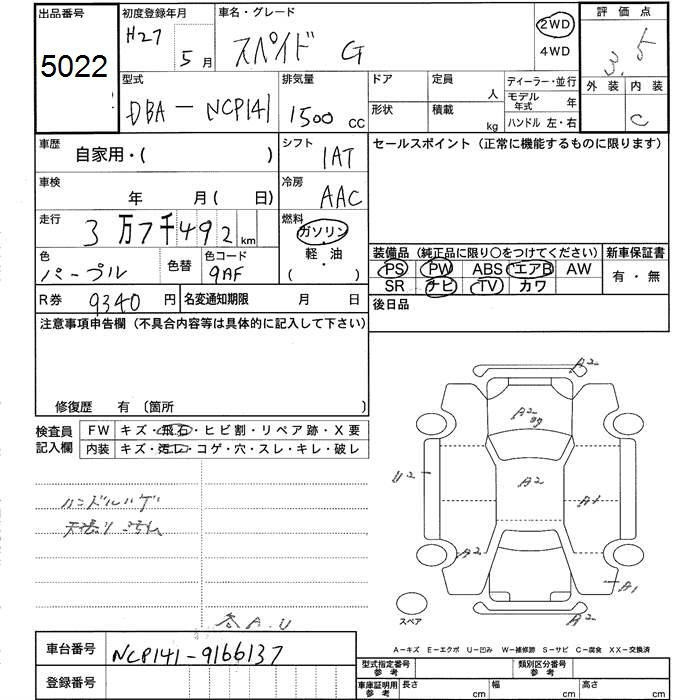 出品番号
5022
初度登録年月
H27 5月
車名・グレード
スペイド G
2WD
4WD
評価点
3.5
外装 内装
C
型式
DBA-NCP141
排気量
1500 CC
ドア
形状
定員
人
積載
kg
ディーラー・並行
モデル年式 年
ハンドル 左・右
車歴
自家用・( )
シフト
IAT
セールスポイント (正常に機能するものに限ります)
車検
年 月( 日)
冷房
AAC
走行
3万7千492km
燃料
ガソリン
・
軽油
( )
色
パープル
色替
色コード
9AF
装備品 (純正品に限り○をつけてください)
新車保証書
PS PW ABS エアB AW
SR ナビ TV カワ
有・無
R券 9340 円
名変通知期限 月 日
後日品
注意事項申告欄 (不具合内容等は具体的に記入して下さい)
修復歴 有 〔箇所 〕
検査員記入欄
FW キズ・飛石・ヒビ割・リペア跡・X要
内装 キズ・汚レ・コゲ・穴・スレ・キレ・破レ
ハンドルハゲ
天張り汚れ
各A.U
A2
A2
U2
A2
A1
A2
A1
A2
スペア
A-キズ E-エクボ U-凹み W-補修跡 S-サビ C-腐食 XX-交換済
車台番号
NCP141-9166137
登録番号
型式指定番号
参考
類別区分番号
参考
車庫証明用
参考
長さ cm
幅 cm
高さ cm